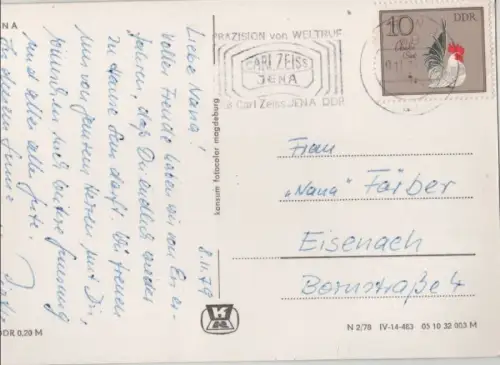 NA
PRÄZISION von WELTRUF
CARL ZEISS
JENA
Carl Zeiss JENA DDR
10
DDR
Liebe Nana!
Voller Freude haben wir von
fahren, daß Du endlich wieder
zu Hause sein darfst. Wir freuen
uns von ganzem Herzen mit Dir,
wünschen Dir weitere Genesung
und alles alles Gute.
In diesem Sinne
8.11.79
konsum fotocolor magdeburg
Frau
„Nana" Färber
Eisenach
Bornstraße 4
DDR 0,20 M
N 2/78 IV-14-483 05 10 32 003 M